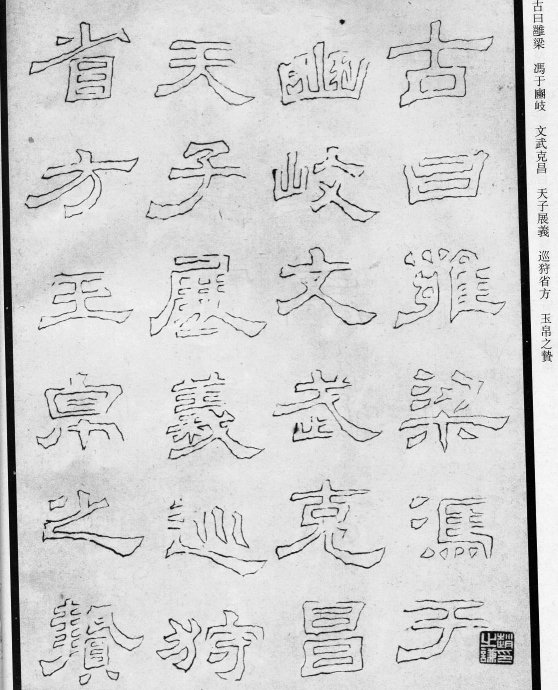 古曰雝梁　馮于豳岐　文武克昌　天子展義　巡狩省方　玉帛之贄
古曰雝梁馮于
豳岐文武克昌
天子展義巡狩
省方玉帛之贄
趙印
之謙